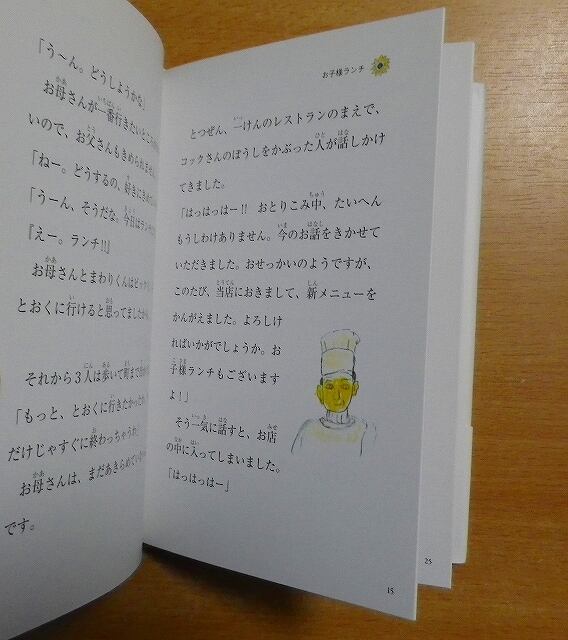 「う〜ん。どうしようかな」
お母さんが一番行きたいところ
いので、お父さんもきめられません
「ねー。どうするの、好きにきめ
「うーん、そうだな。今日はラン
『えー。ランチ!!』
お母さんとまわりくんはビック
とおくに行けると思ってました
それから3人は歩いて町まで
「もっと、とおくに行きたかった
だけじゃすぐに終わっちゃうわ
お母さんは、まだあきらめてい
です。
お子様ランチ
とつぜん、一けんのレストランのまえで、
コックさんのぼうしをかぶった人が話しかけ
てきました。
「はっはっはー!! おとりこみ中、たいへん
もうしわけありません。今のお話をきかせて
いただきました。おせっかいのようですが、
このたび、当店におきまして、新メニューを
かんがえました。よろしけ
ればいかがでしょうか。お
子様ランチもございます
よ!」
そう一気に話すと、お店
の中に入ってしまいました。
「はっはっはー」
15
25